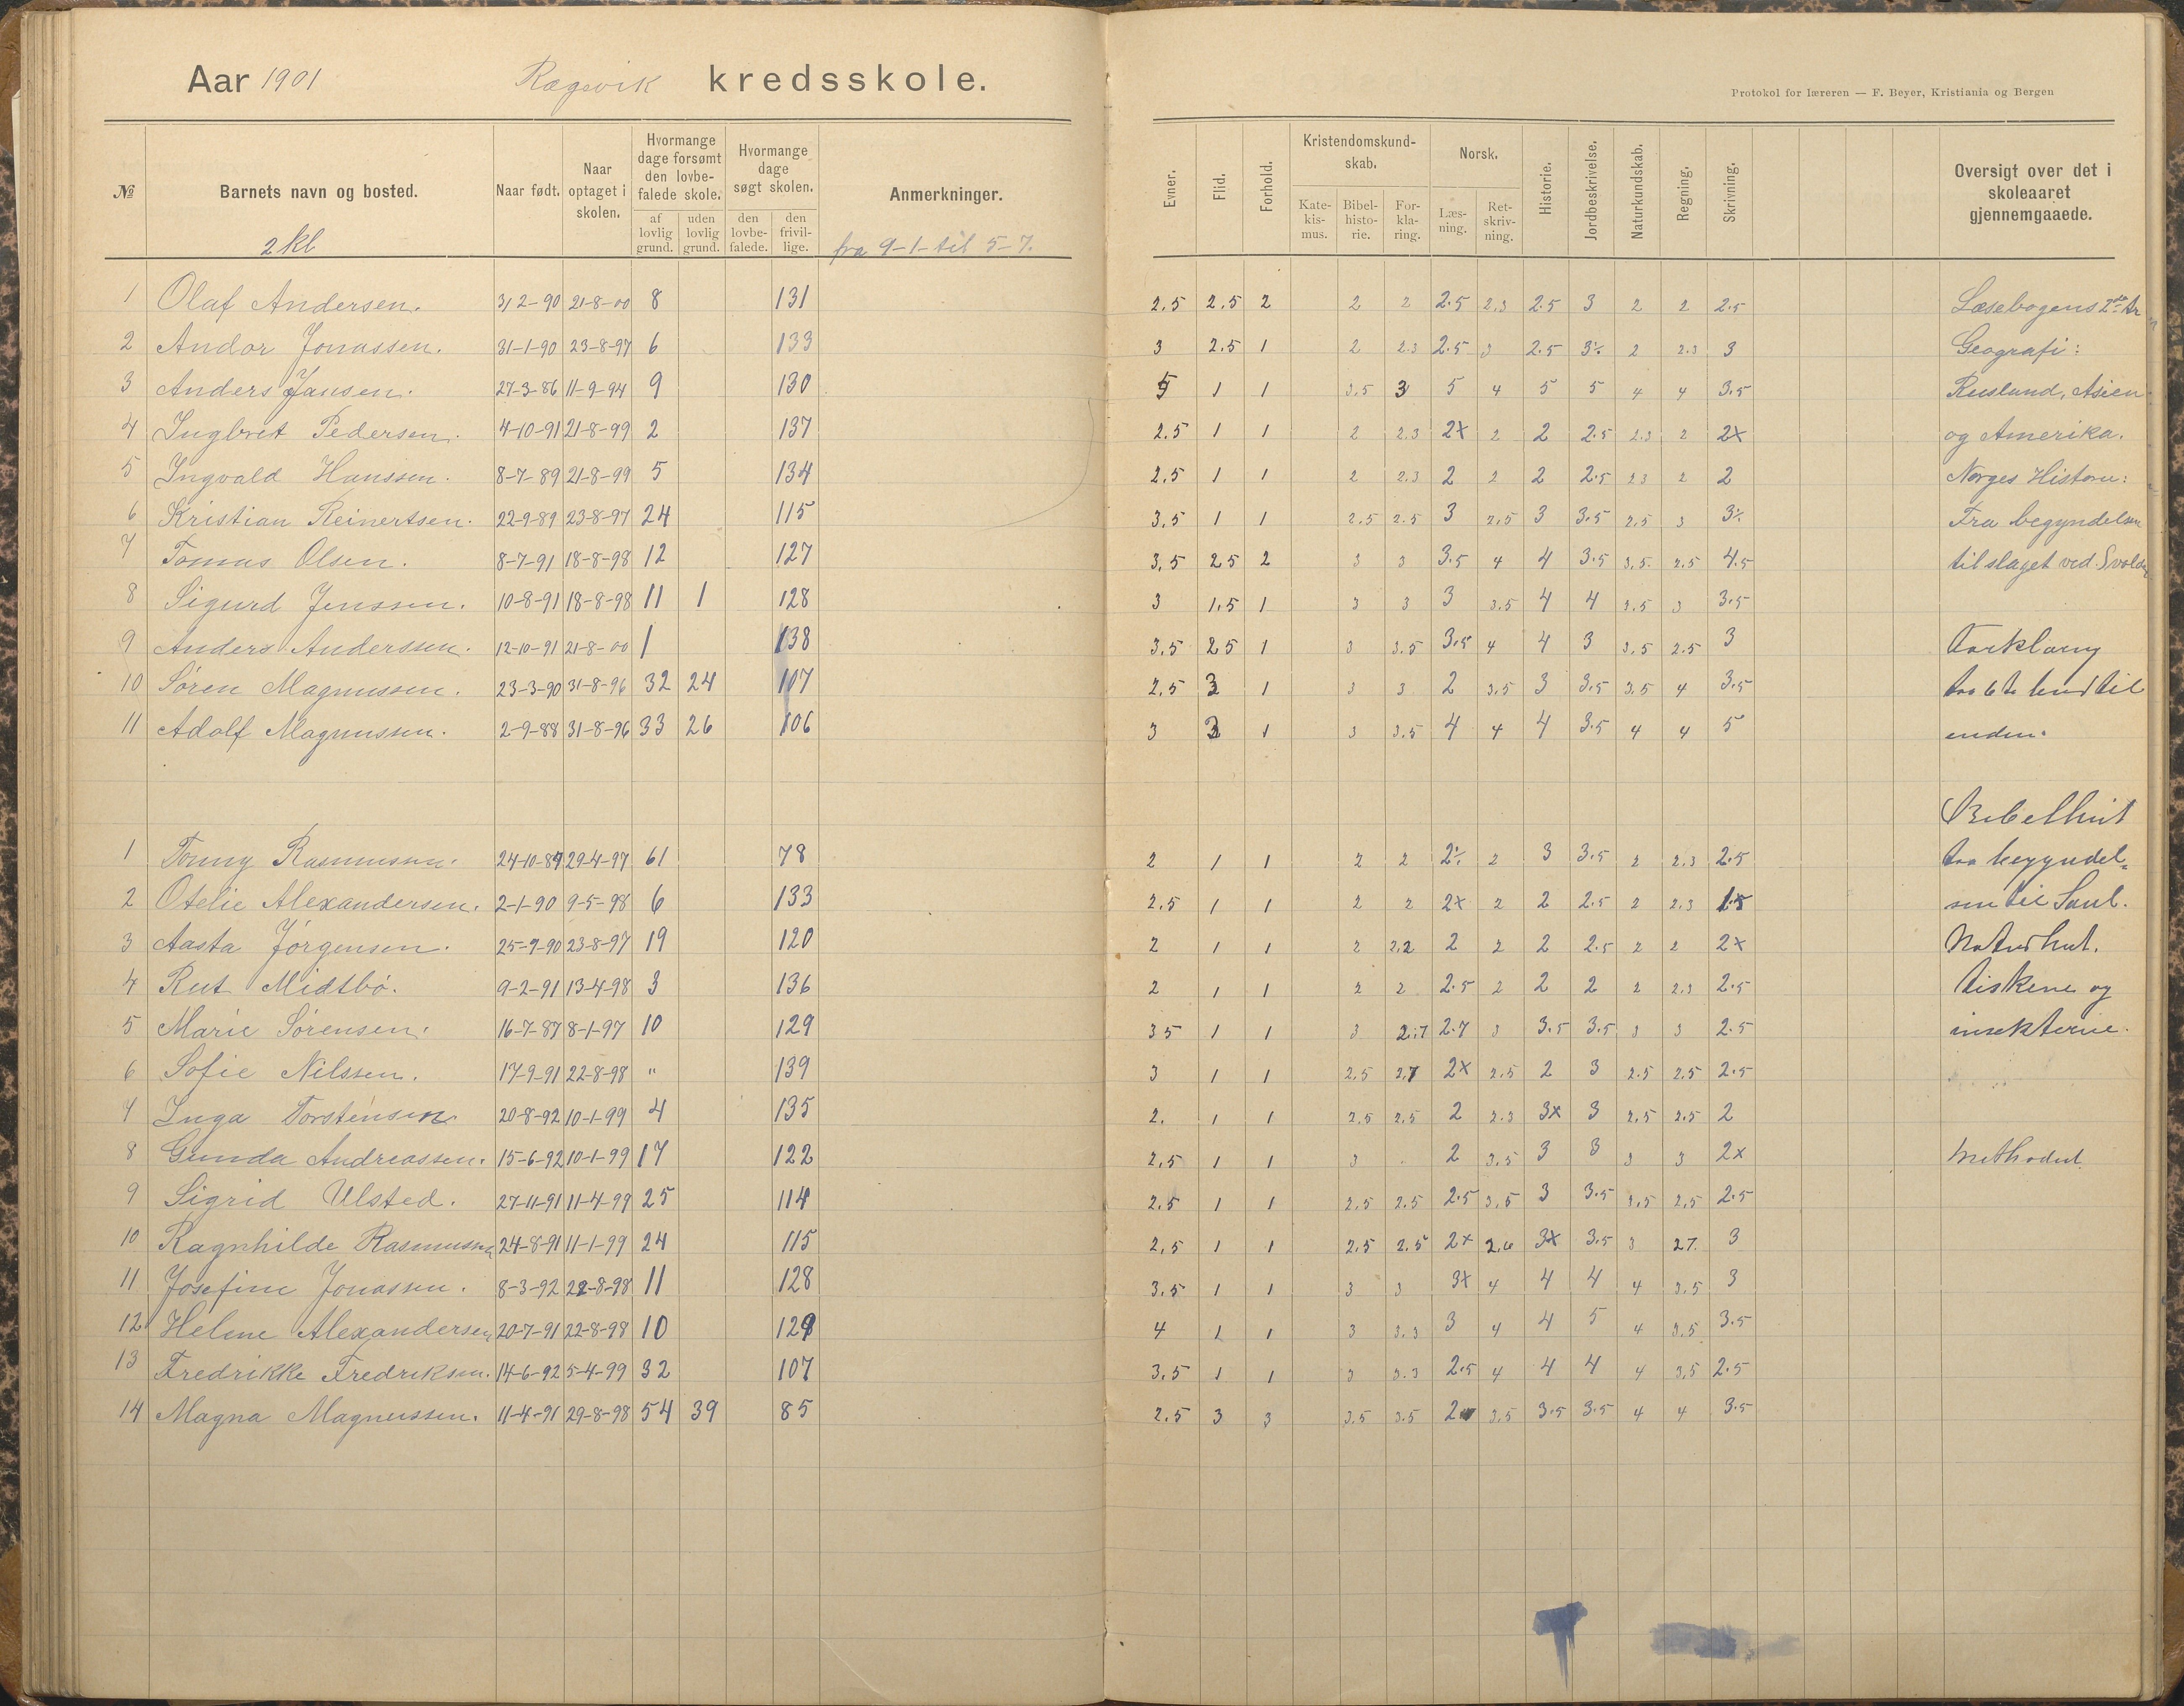 Aar 1901 Rægevik kredsskole.
Protokol for læreren — F. Beyer, Kristiania og Bergen
№ Barnets navn og bosted. Naar født. Naar optaget i skolen. Hvormange dage forsømt den lovbefalede skole. af lovlig grund. uden lovlig grund. Hvormange dage søgt skolen. den lovbefalede. den frivillige. Anmerkninger.
Evner. Flid. Forhold. Kristendomskundskab. Katekismus. Bibelhistorie. Forklaring. Norsk. Læsning. Retskrivning. Historie. Jordbeskrivelse. Naturkundskab. Regning. Skrivning. Oversigt over det i skoleaaret gjennemgaaede.
2 kl fra 9-1- til 5-7.
1 Olaf Andersen. 31 2-90 21-8-00 8 131 2.5 2.5 2 2 2 2.5 2.3 2.5 3 2 2 2.5 Læsebogens 2den
2 Andor Jonassen. 31-1-90 23-8-97 6 133 3 2.5 1 2 2.3 2.5 3 2.5 3÷ 2 2.3 3 Geografi:
3 Anders Jansen. 27-3-86 11-9-94 9 130 5 1 1 3.5 3 5 4 5 5 4 4 3.5 Rusland, Asien
4 Ingbret Pedersen. 4-10-91 21-8-99 2 137 2.5 1 1 2 2.3 2x 2 2 2.5 2.3 2 2x og Amerika.
5 Ingvald Hanssen. 8-7-89 21-8-99 5 134 2.5 1 1 2 2.3 2 2 2 2.5 2.3 2 2 Norges Historie:
6 Kristian Reinertsen. 22-9-89 23-8-97 24 115 3.5 1 1 2.5 2.5 3 2.5 3 3.5 2.5 3 3÷ Fra begyndelsen
7 Tomas Olsen. 8-7-91 18-8-98 12 127 3.5 2 5 2 3 3 3.5 4 4 3.5 3.5 2.5 4.5 til slaget ved Svolder
8 Sigurd Jenssen. 10-8-91 18-8-98 11 1 128 3 1.5 1 3 3 3 3.5 4 4 3.5 3 3.5
9 Anders Anderssen. 12-10-91 21-8-00 1 138 3.5 2 5 1 3 3.5 3.5 4 4 3 3.5 2.5 3 Forklaring
10 Søren Magnussen. 23-3-90 31-8-96 32 24 107 2.5 3 1 3 3 2 3.5 3 3.5 3.5 4 3.5 fra 6te bud til
11 Adolf Magnussen. 2-9-88 31-8-96 33 26 106 3 3 1 3 3.5 4 4 4 3.5 4 4 5 enden.
Bibelhist
1 Tonny Rasmussen. 24-10-89 29-4-97 61 78 2 1 1 2 2 2÷ 2 3 3.5 2 2.3 2.5 fra begyndel-
2 Otelie Alexandersen. 2-1-90 9-5-98 6 133 2.5 1 1 2 2 2x 2 2 2.5 2 2.3 1.5 sen til Saul.
3 Aasta Jørgensen. 25-7-90 23-8-97 19 120 2 1 1 2 2.2 2 2 2 2.5 2 2 2x Naturhist.
4 Rut Midtbø. 9-2-91 13-4-98 3 136 2 1 1 2 2 2.5 2 2 2 2 2.3 2.5 Fiskene og
5 Marie Sørensen. 16-7-87 8-1-97 10 129 3 5 1 1 3 2.7 2.7 3 3.5 3.5 3 3 2.5 insekterne.
6 Sofie Nilssen. 17-9-91 22-8-98 " 139 3 1 1 2.5 2.7 2x 2.5 2 3 2.5 2.5 2.5
7 Inga Torstensen 20-8-92 10-1-99 4 135 2. 1 1 2.5 2.5 2 2.3 3x 3 2.5 2.5 2
8 Gunda Andreassen. 15-6-92 10-1-99 17 122 2.5 1 1 3 2 3.5 3 3 3 3 2x
9 Sigrid Ulsted. 27-11-91 11-4-99 25 114 2.5 1 1 2.5 2.5 2.5 3.5 3 3.5 3.5 2.5 2.5
10 Ragnhilde Rasmussen 24-8-91 11-1-99 24 115 2.5 1 1 2.5 2.5 2x 2.6 3x 3.5 3 2 7. 3
11 Josefine Jonassen. 8-3-92 22-8-98 11 128 3.5 1 1 3 3 3x 4 4 4 4 3.5 3
12 Helene Alexandersen 20-7-91 22-8-98 10 129 4 1 1 3 3.3 3 4 4 5 4 3.5 3.5
13 Fredrikke Fredriksen. 14-6-92 5-4-99 32 107 3.5 1 1 3 3.3 2.5 4 4 4 4 3.5 2.5
14 Magna Magnussen. 11-4-91 29-8-98 54 39 85 2.5 3 3 3.5 3.5 2 3.5 3.5 3.5 4 4 3.5